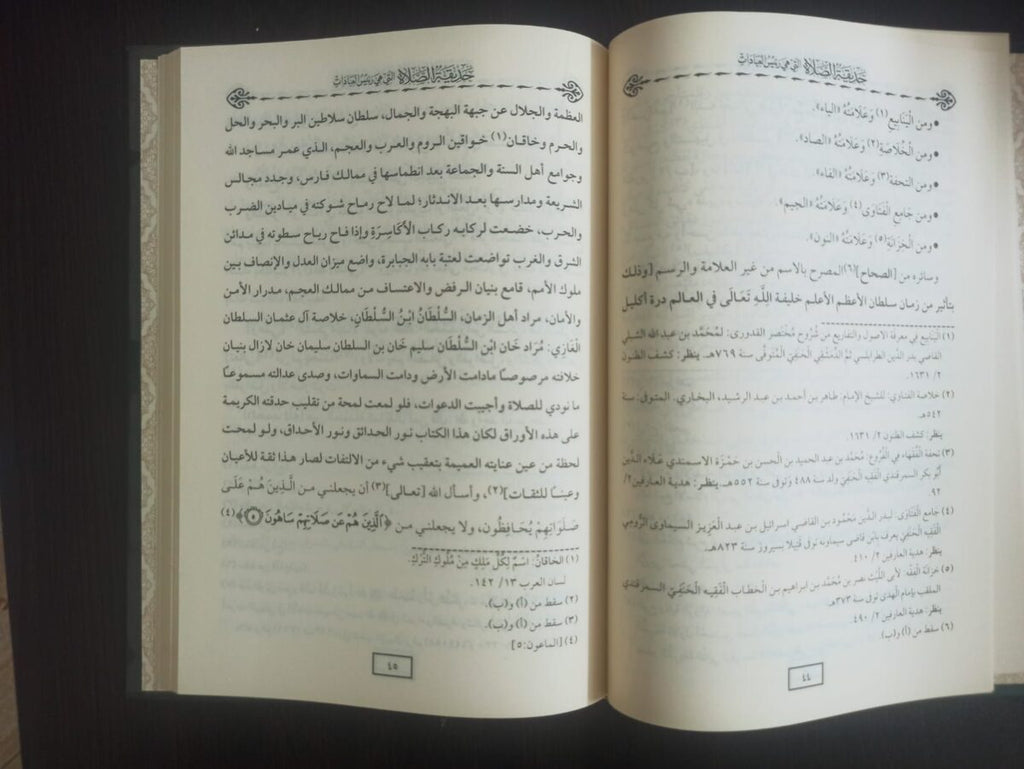 حَدِيقَةُ الصَّلَاةِ الَّتِي هِيَ رَئِيسُ العِبَادَاتِ
• ومن الْيَنَابِيعِ(١) وَعَلَامَتُهُ «الياء».
• ومن الْخُلَاصَةِ(٢) وَعَلَامَتُهُ «الصاد».
• ومن التحفة(٣) وَعَلَامَتُهُ «الفاء».
• ومن جَامِعِ الْفَتَاوَى(٤) وَعَلَامَتُهُ «الجيم».
• ومن الْخِزَانَةِ(٥) وَعَلَامَتُهُ «النون».
وسائره من [الصحاح](٦) المصرح بالاسم من غير العلامة والرسم [وذلك
بتأثير من زمان سلطان الأعظم الأعلم خليفة اللَّهِ تَعَالَى في العالم درة أكليل
(١) اليَنَابِيع في معرفة الاصول والتفاريع من شُرُوح مُخْتَصر القدورى: لمُحَمَّد بن عبد الله الشلي
القاضي بدر الدّين الطرابلسي ثمَّ الدِّمَشْقِي الْحَنَفِيّ الْمُتَوفَّى سنة ٧٦٩هـ. ينظر: كشف الظنون
٢/ ١٦٣١.
(٢) خلاصة الفتاوى: للشيخ الإمام: طاهر بن أحمد بن عبد الرشيد، البخاري. المتوفى: سنة
٥٤٢هـ.
ينظر: كشف الظنون ٢/ ١٦٣١.
(٣) تحفة الْفُقَهَاء في الْفُرُوع: مُحَمَّد بن عبد الحميد بن الْحسن بن حَمْزَة الاسمندي عَلَاء الدِّين
أَبُو بكر السمرقندي الْفَقِيه الْحَنَفِيّ ولد سنة ٤٨٨ وَتوفى سنة ٥٥٢هـ. ينظر: هدية العارفين ٢/
٩٢.
(٤) جَامع الْفَتَاوَى: لبدر الدّين مَحْمُود بن القاضي اسرائيل بن عبد الْعَزِيز السيماوى الرُّومِي
الْفَقِيه الْحَنَفِيّ يعرف بابْن قاضى سيماونه توفى قَتِيلا بسيروز سنة ٨٢٣هـ.
ينظر: هدية العارفين ٢/ ٤١٠.
(٥) خزانَة الْفِقْه: لأبى اللَّيْث نصر بن مُحَمَّد بن ابراهيم بن الْخطاب الْفَقِيه الْحَنَفِيّ السمرقندي
الملقب بإمام الْهدى توفى سنة ٣٧٣هـ.
ينظر: هدية العارفين ٢/ ٤٩٠.
(٦) سقط من (أ) و(ب).
٤٤
حَدِيقَةُ الصَّلَاةِ الَّتِي هِيَ رَئِيسُ العِبَادَاتِ
العظمة والجلال عن جبهة البهجة والجمال، سلطان سلاطين البر والبحر والحل
والحرم وخاقان(١) خواقين الروم والعرب والعجم، الذي عمر مساجد الله
وجوامع أهل السنة والجماعة بعد انطماسها في ممالك فارس، وجدد مجالس
الشريعة ومدارسها بعد الاندثار؛ لما لاح رماح شوكته في ميادين الضرب
والحرب، خضعت لركابه ركاب الأَكَاسِرَةِ وإذا فاح رياح سطوته في مدائن
الشرق والغرب تواضعت لعتبة بابه الجبابرة، واضع ميزان العدل والإنصاف بين
ملوك الأمم، قامع بنيان الرفض والاعتساف من ممالك العجم، مدرار الأمن
والأمان، مراد أهل الزمان، السُّلْطَانُ ابْنُ السُّلْطَانِ، خلاصة آل عثمان السلطان
الْغَازِي: مُرَاد خَان ابْن السُّلْطَان سليم خَان بن السلطان سليمان خان لازال بنيان
خلافته مرصوصا مادامت الأرض ودامت السماوات، وصدى عدالته مسموعًا
ما نودي للصلاة وأجيبت الدعوات، فلو لمعت لمحة من تقليب حدقته الكريمة
على هذه الأوراق لكان هذا الكتاب نور الحدائق ونور الأحداق، ولو لمحت
لحظة من عين عنايته العميمة بتعقيب شيء من الالتفات لصار هذا ثقة للأعيان
وعينًا للثقات](٢)، وأسأل الله [تعالى](٣) أن يجعلني من الَّذِينَ هُمْ عَلَى
صَلَوَاتِهِمْ يُحَافِظُون، ولا يجعلني من ﴿ٱلَّذِينَ هُمْ عَن صَلَاتِهِمْ سَاهُونَ ۝٥﴾(٤)
(١) الخاقانُ: اسْمٌ لِكُلِّ مَلِكٍ مِنْ مُلُوكِ التُّرْكِ.
لسان العرب ١٣/ ١٤٢.
(٢) سقط من (أ) و(ب).
(٣) سقط من (أ) و(ب).
(٤) [الماعون: ٥]
٤٥